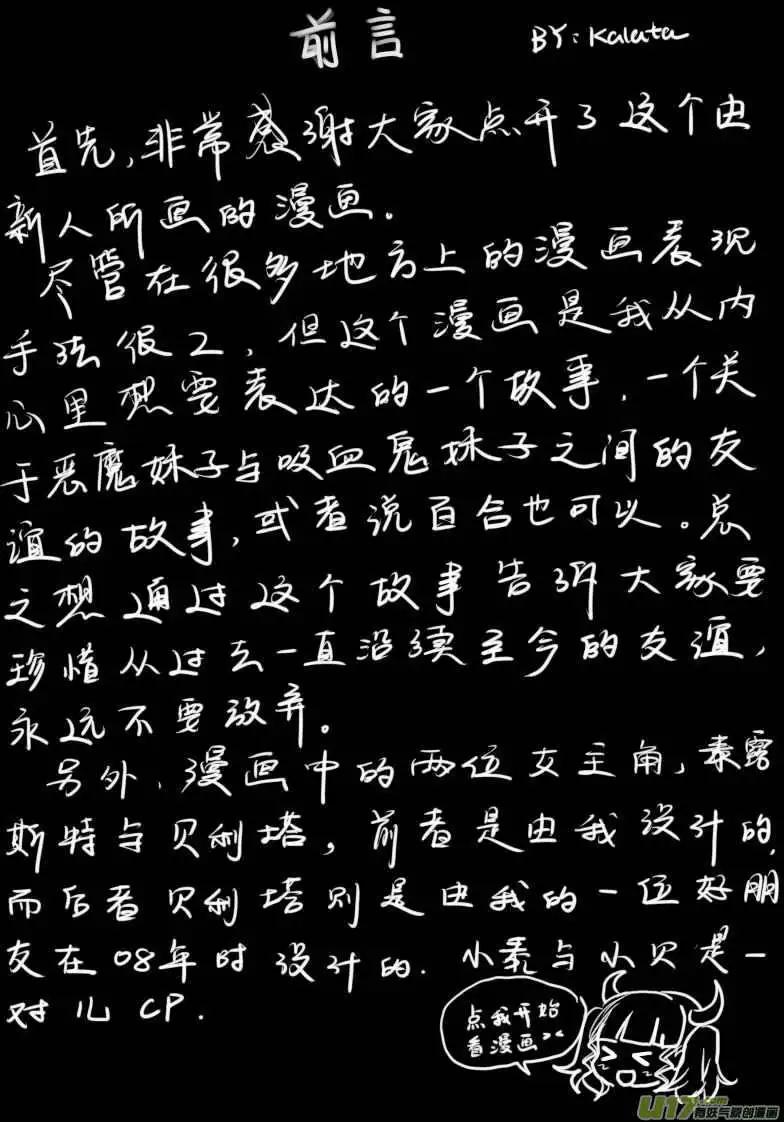 前言
BY: Kalata
首先,非常感谢大家点开了这个由
新人所画的漫画.
尽管在很多地方上的漫画表现
手法很2,但这个漫画是我从内
心里想要表达的一个故事.一个关
于恶魔妹子与吸血鬼妹子之间的友
谊的故事,或者说百合也可以。总
之想通过这个故事告诉大家要
珍惜从过去一直沿续至今的友谊,
永远不要放弃。
另外,漫画中的两位女主角,泰露
斯特与贝利塔,前者是由我设计的,
而后者贝利塔则是由我的一位好朋
友在08年时设计的.小泰与小贝是一
对儿CP.
点我开始
看漫画><
U17 有妖气原创漫画